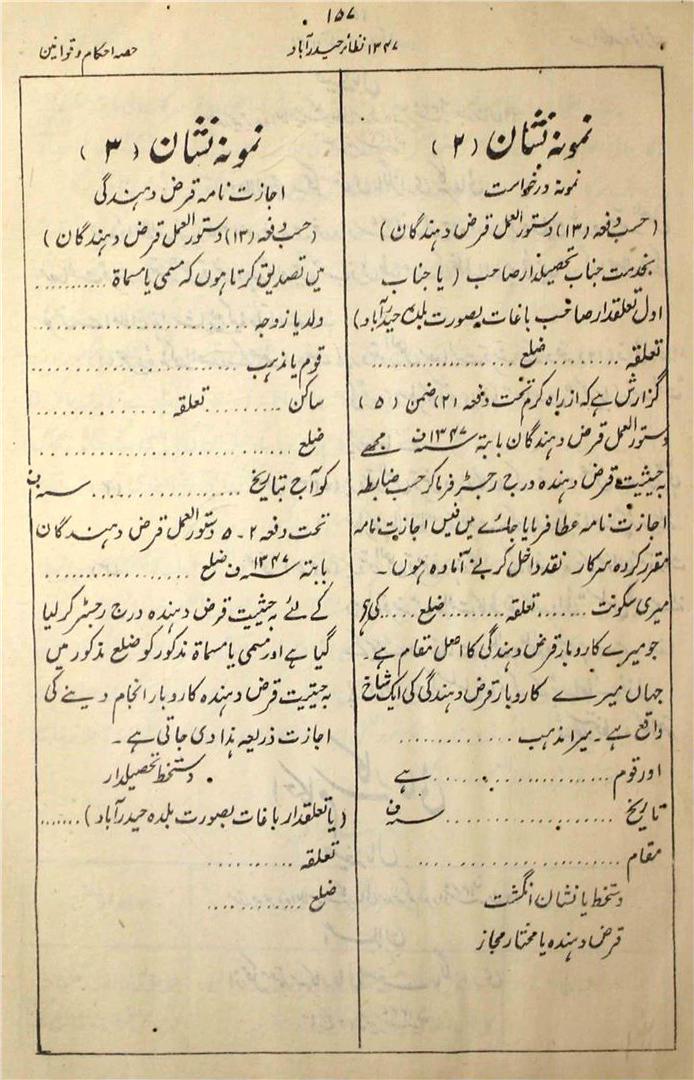 ۱۵۷
۱۳۴۷ نظائر حیدرآباد
حصہ احکام و قوانین
نمونہ نشان (۲)
نمونہ درخواست
(حسب دفعہ (۱۳) دستور العمل قرض دہندگان)
بخدمت جناب تحصیلدار صاحب (یا جناب
اول تعلقدار صاحب باغات بصورت بلدہ حیدرآباد)
تعلقہ .......... ضلع ..................
گزارش ہے کہ از راہ کرم تحت دفعہ (۲) ضمن (۵)
دستور العمل قرض دہندگان بابتہ سنہ ۱۳۴۷ ف مجھے
بہ حیثیت قرض دہندہ درج رجسٹر فرما کر حسب ضابطہ
اجازت نامہ عطا فرمایا جائے میں فیس اجازت نامہ
مقرر کردہ سرکار نقد داخل کرنے آمادہ ہوں۔
میری سکونت ...... تعلقہ ...... ضلع ..... کی ہے
جو میرے کاروبار قرض دہندگی کا اصل مقام ہے۔
جہاں میرے کاروبار قرض دہندگی کی ایک شاخ
واقع ہے۔ میرا مذہب ..............
اور قوم .................. ہے
تاریخ .................. سنہ ف
مقام ....................
دستخط یا نشان انگشت
قرض دہندہ یا مختار مجاز
نمونہ نشان (۳)
اجازت نامہ قرض دہندگی
(حسب دفعہ (۱۳) دستور العمل قرض دہندگان)
میں تصدیق کرتا ہوں کہ مسمی یا مسماۃ ..........
ولد یا زوجہ ........................
قوم یا مذہب ........................
ساکن .......... تعلقہ ..............
ضلع ........................
کو آج بتاریخ .............. سنہ ف
تحت دفعہ ۲-۵ دستور العمل قرض دہندگان
بابتہ سنہ ۱۳۴۷ ف ضلع ..................
کے لئے بہ حیثیت قرض دہندہ درج رجسٹر کر لیا
گیا ہے اور مسمی یا مسماۃ مذکور کو ضلع مذکور میں
بہ حیثیت قرض دہندہ کاروبار انجام دینے کی
اجازت ذریعہ ہذا دی جاتی ہے۔
دستخط تحصیلدار
(یا تعلقدار باغات بصورت بلدہ حیدرآباد) .......
تعلقہ ............
ضلع ............